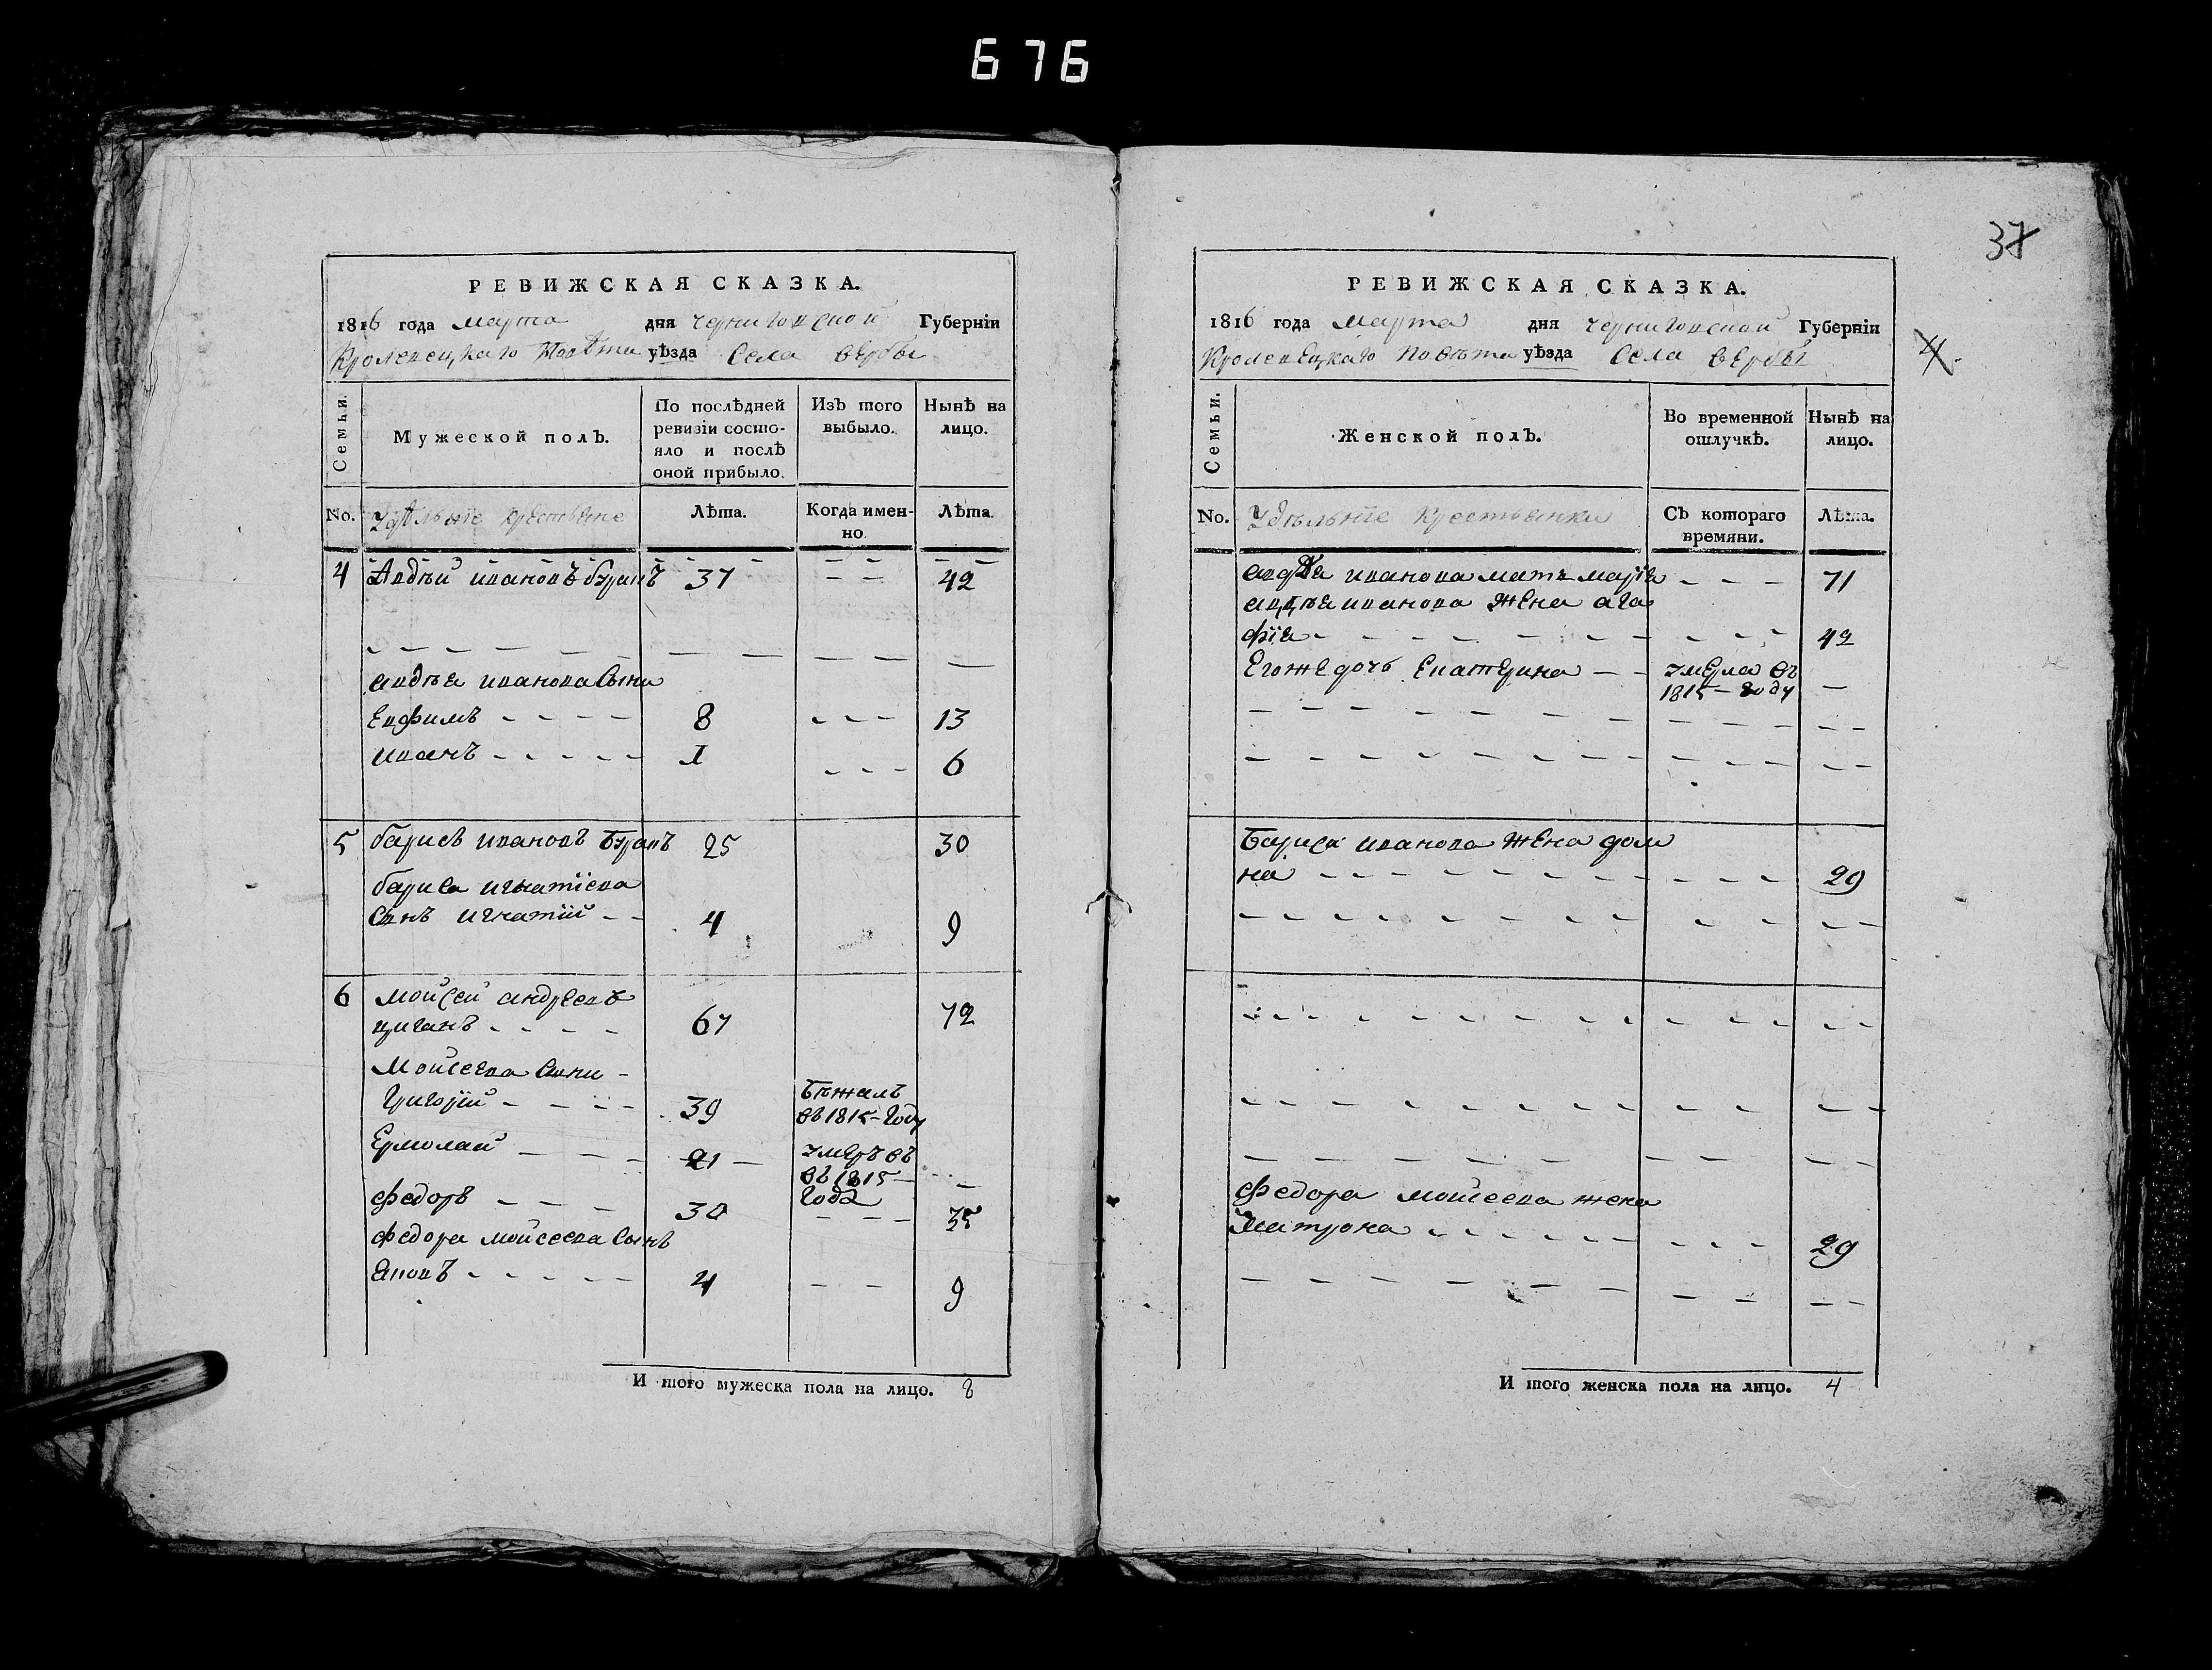 676
РЕВИЖСКАЯ СКАЗКА.
1816 года марта дня черниговской Губерніи
Кролевецкаго Повѣта уѣзда Села вербы
Семьи.
Мужеской полъ.
По послѣдней
ревизіи состо-
яло и послѣ
оной прибыло.
Изъ того
выбыло.
Нынѣ на
лицо.
No. Удѣльніе крестьяне
Лѣта.
Когда имен-
но.
Лѣта.
4 Авдѣй ивановъ 37 — — 42
авдѣя иванова Сыни
Евфимъ - - - - 8 - - - 13
иванъ - - - - - 1 - - - 6
5 барисъ ивановъ 25 30
бариса игнатіева
Сынъ игнатій - - 4 9
6 мойсей андреевъ
циганъ - - - - 67 72
Мойсеева Сыни -
Григорій - - - - 39 Бѣжалъ
въ 1815 - году
Ермолай - - - 21 - умеръ въ
въ 1815 -
года
федоръ - - - 30 - - - 35
федора мойсеева Сынъ
Яковъ - - - - - 4 - - 9
И того мужеска пола на лицо. 8
37
РЕВИЖСКАЯ СКАЗКА.
1816 года марта дня черниговской Губерніи
Кролевецкаго повѣта уѣзда Села вербы
4.
Семьи.
Женской полъ.
Во временной
отлучкѣ.
Нынѣ на
лицо.
No. Удѣльніе Крестьянки
Съ котораго
времяни.
Лѣта.
иванова мать марія - - - 71
авдѣя иванова жена ага
фія - - - - - - - - - 42
Егоже дочь Екатерина - - умерла въ
1815 - году —
Бариса иванова жена дом
на - - - - - - - - - - 29
федора мойсеева жена
Матрона - - - - - - - - 29
И того женска пола на лицо. 4